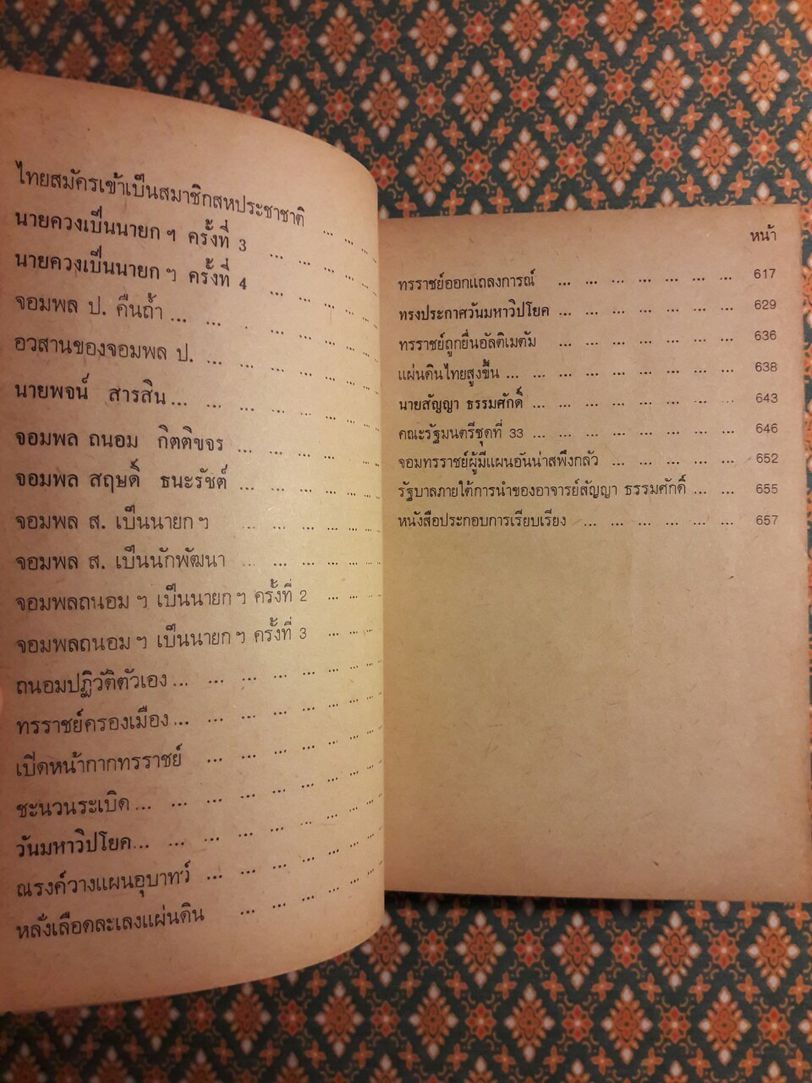 ไทยสมัครเข้าเป็นสมาชิกสหประชาชาติ ... ... ...
นายควงเป็นนายก ฯ ครั้งที่ 3 ... ... ... ...
นายควงเป็นนายก ฯ ครั้งที่ 4 ... ... ... ...
จอมพล ป. คืนถ้ำ ... ... ... ... ... ...
อวสานของจอมพล ป. ... ... ... ... ...
นายพจน์ สารสิน ... ... ... ... ... ...
จอมพล ถนอม กิตติขจร ... ... ... ... ...
จอมพล สฤษดิ์ ธนะรัชต์ ... ... ... ... ...
จอมพล ส. เป็นนายก ฯ ... ... ... ... ...
จอมพล ส. เป็นนักพัฒนา ... ... ... ... ...
จอมพลถนอม ฯ เป็นนายก ฯ ครั้งที่ 2 ... ... ...
จอมพลถนอม ฯ เป็นนายก ฯ ครั้งที่ 3 ... ... ...
ถนอมปฏิวัติตัวเอง ... ... ... ... ... ... ...
ทรราชย์ครองเมือง ... ... ... ... ... ... ...
เปิดหน้ากากทรราชย์ ... ... ... ... ... ...
ชะนวนระเบิด ... ... ... ... ... ... ... ...
วันมหาวิปโยค ... ... ... ... ... ... ... ...
ณรงค์วางแผนอุบาทว์ ... ... ... ... ... ...
หลั่งเลือดละเลงแผ่นดิน ... ... ... ... ...
หน้า
ทรราชย์ออกแถลงการณ์ ... ... ... ... ... ... ... 617
ทรงประกาศวันมหาวิปโยค ... ... ... ... ... ... ... 629
ทรราชย์ถูกยื่นอัลติเมตัม ... ... ... ... ... ... ... 636
แผ่นดินไทยสูงขึ้น ... ... ... ... ... ... ... ... 638
นายสัญญา ธรรมศักดิ์ ... ... ... ... ... ... ... ... 643
คณะรัฐมนตรีชุดที่ 33 ... ... ... ... ... ... ... ... 646
จอมทรราชย์ผู้มีแผนอันน่าสพึงกลัว ... ... ... ... ... 652
รัฐบาลภายใต้การนำของอาจารย์สัญญา ธรรมศักดิ์ ... ... 655
หนังสือประกอบการเรียบเรียง ... ... ... ... ... ... 657